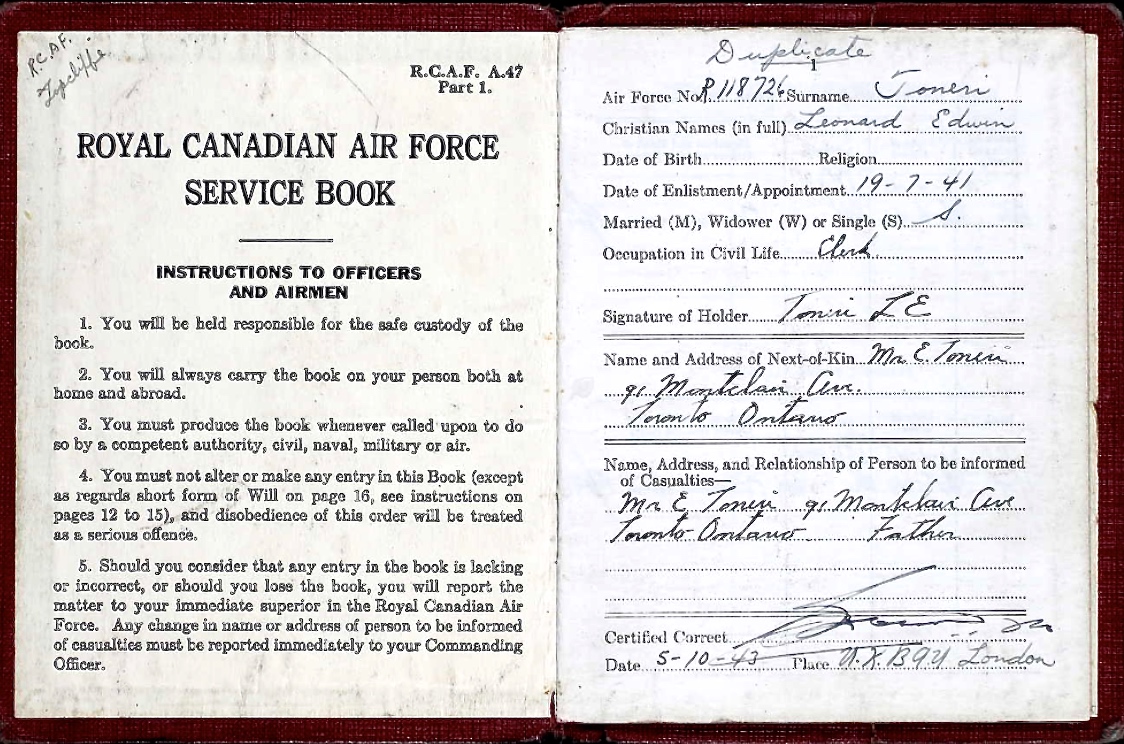 R.C.A.F.
Topcliffe
R.C.A.F. A.47
Part 1.
ROYAL CANADIAN AIR FORCE
SERVICE BOOK
INSTRUCTIONS TO OFFICERS
AND AIRMEN
1. You will be held responsible for the safe custody of the
book.
2. You will always carry the book on your person both at
home and abroad.
3. You must produce the book whenever called upon to do
so by a competent authority, civil, naval, military or air.
4. You must not alter or make any entry in this Book (except
as regards short form of Will on page 16, see instructions on
pages 12 to 15), and disobedience of this order will be treated
as a serious offence.
5. Should you consider that any entry in the book is lacking
or incorrect, or should you lose the book, you will report the
matter to your immediate superior in the Royal Canadian Air
Force. Any change in name or address of person to be informed
of casualties must be reported immediately to your Commanding
Officer.
Duplicate
1
Air Force No. R118726 Surname Toneri
Christian Names (in full) Leonard Edwin
Date of Birth Religion
Date of Enlistment/Appointment 19-7-41
Married (M), Widower (W) or Single (S) S.
Occupation in Civil Life Clerk
Signature of Holder Toneri L E
Name and Address of Next-of-Kin Mr E. Toneri
91 Montclair Ave.
Toronto Ontario
Name, Address, and Relationship of Person to be informed
of Casualties—
Mr E Toneri 91 Montclair Ave
Toronto Ontario Father
Certified Correct
Date 5-10-43 Place London